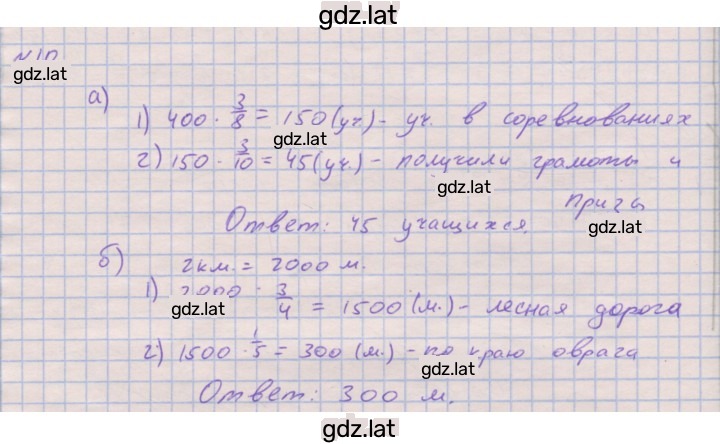 gdz.lat
№1П
gdz.lat
а)
1) 400 · 3/8 = 150 (уч.) - уч. в соревнованиях
gdz.lat
2) 150 · 3/10 = 45 (уч.) - получили грамоты и
gdz.lat
призы
Ответ: 45 учащихся.
gdz.lat
б)
2 км. = 2000 м.
1) 2000 · 3/4 = 1500 (м.) - лесная дорога
gdz.lat
2) 1500 · 1/5 = 300 (м.) - по краю оврага
gdz.lat
Ответ: 300 м.
gdz.lat